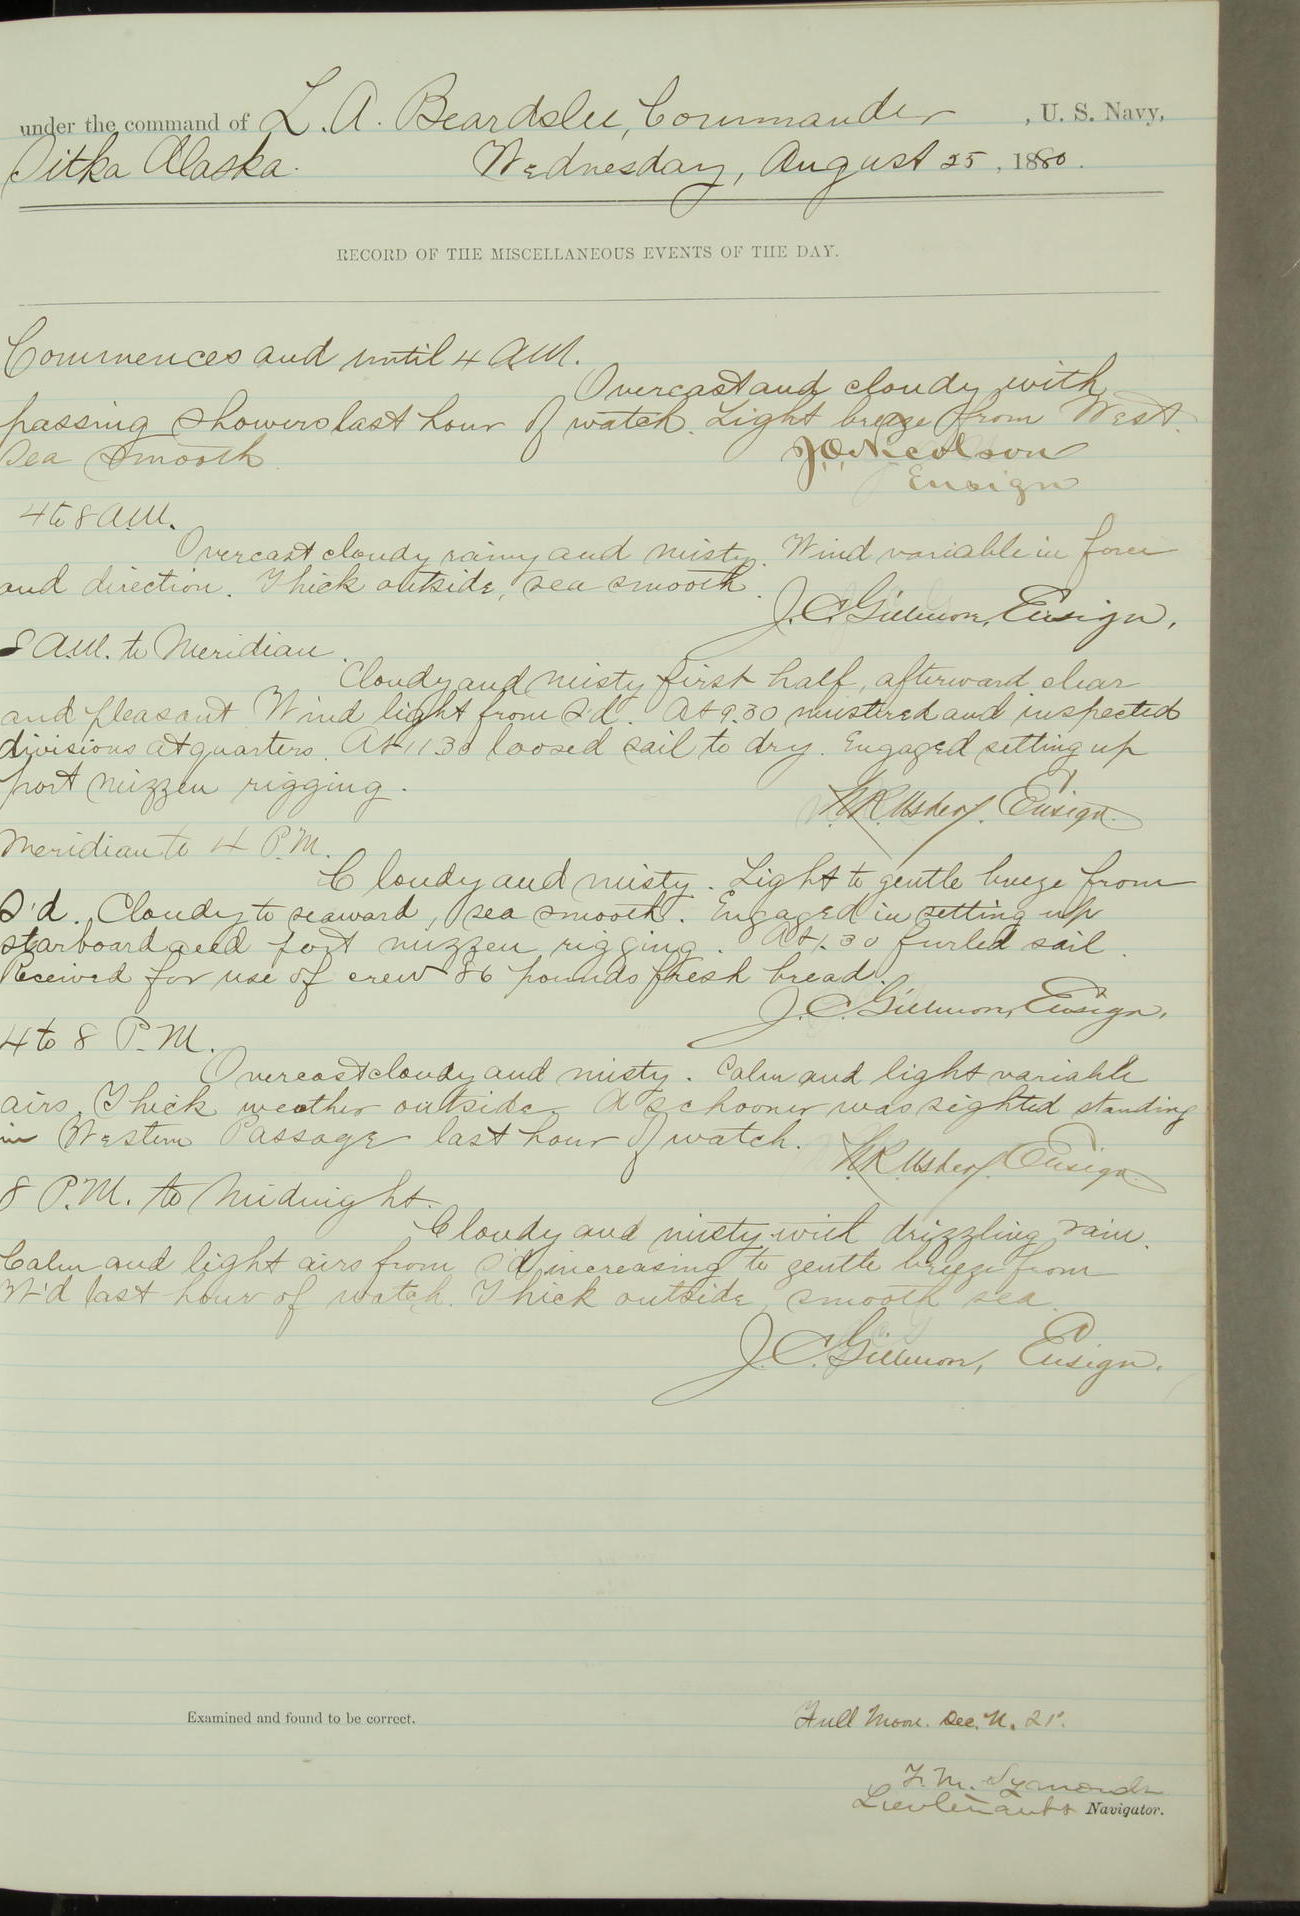 under the command of L. A. Beardslee, Commander, U. S. Navy,
Sitka Alaska. Wednesday, August 25, 1880.
RECORD OF THE MISCELLANEOUS EVENTS OF THE DAY.
Commences and until 4 A.M.
Overcast and cloudy with
passing showers last hour of watch. Light breeze from West.
Sea smooth
J.O. Nicolson
Ensign
4 to 8 A.M.
Overcast cloudy rainy and misty. Wind variable in force
and direction. Thick outside, sea smooth.
J. C. Gillmore, Ensign.
8 A.M. to Meridian.
Cloudy and misty first half, afterward clear
and pleasant. Wind light from S'd. At 9.30 mustered and inspected
divisions at quarters. At 11 30 loosed sail to dry. Engaged setting up
port mizzen rigging.
N.R. Usher, Ensign.
Meridian to 4 P.M.
Cloudy and misty. Light to gentle breeze from
S'd. Cloudy to seaward, sea smooth. Engaged in setting up
starboard and port mizzen rigging. At 1.30 furled sail.
Received for use of crew 86 pounds fresh bread.
J. C. Gillmore, Ensign.
4 to 8 P.M.
Overcast cloudy and misty. Calm and light variable
airs. Thick weather outside. A schooner was sighted standing
in Western Passage last hour of watch.
N.R. Usher, Ensign.
8 P.M. to Midnight.
Cloudy and misty with drizzling rain.
Calm and light airs from S'd, increasing to gentle breeze from
W'd last hour of watch. Thick outside, smooth sea.
J. C. Gillmore, Ensign.
Examined and found to be correct.
Full Moon. Dec. N. 21°.
F. M. Symonds
Lieutenant & Navigator.